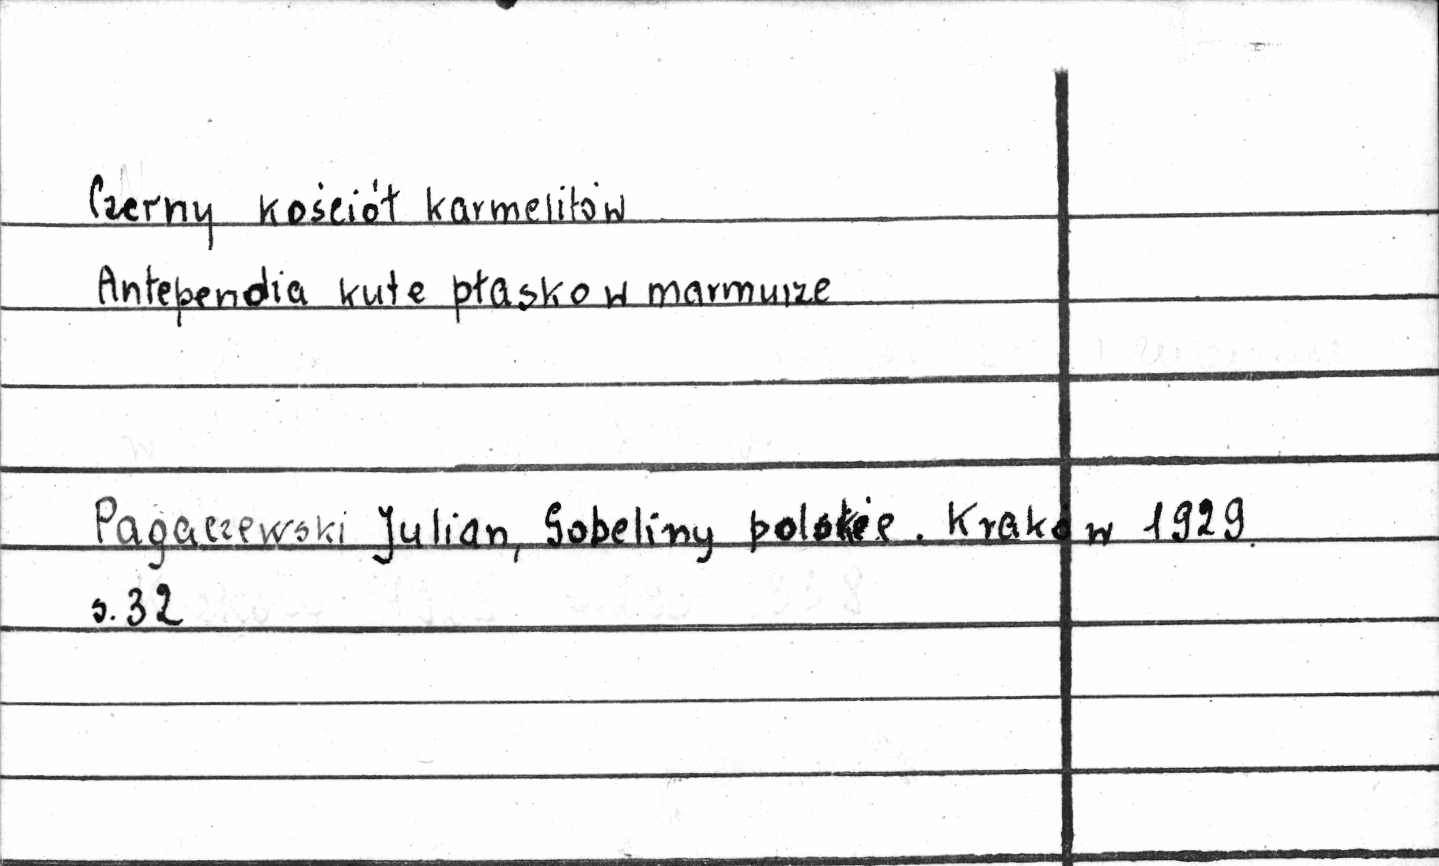 Czerny kościół karmelitów
Antependia kute płasko w marmurze
Pagaczewski Julian, Gobeliny polskie. Kraków 1929.
s. 32